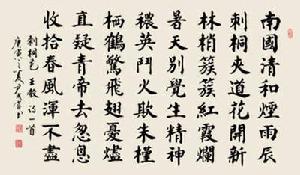 南國清和煙雨辰
刺桐夾道花開新
林梢簇簇紅霞爛
暑天別覺生精神
穠英鬥火欺朱槿
栖鶴驚飛翅憂燼
直疑青帝去怱怱
收拾春風渾不盡
刺桐花 王轂 詩一首
庚寅之夏